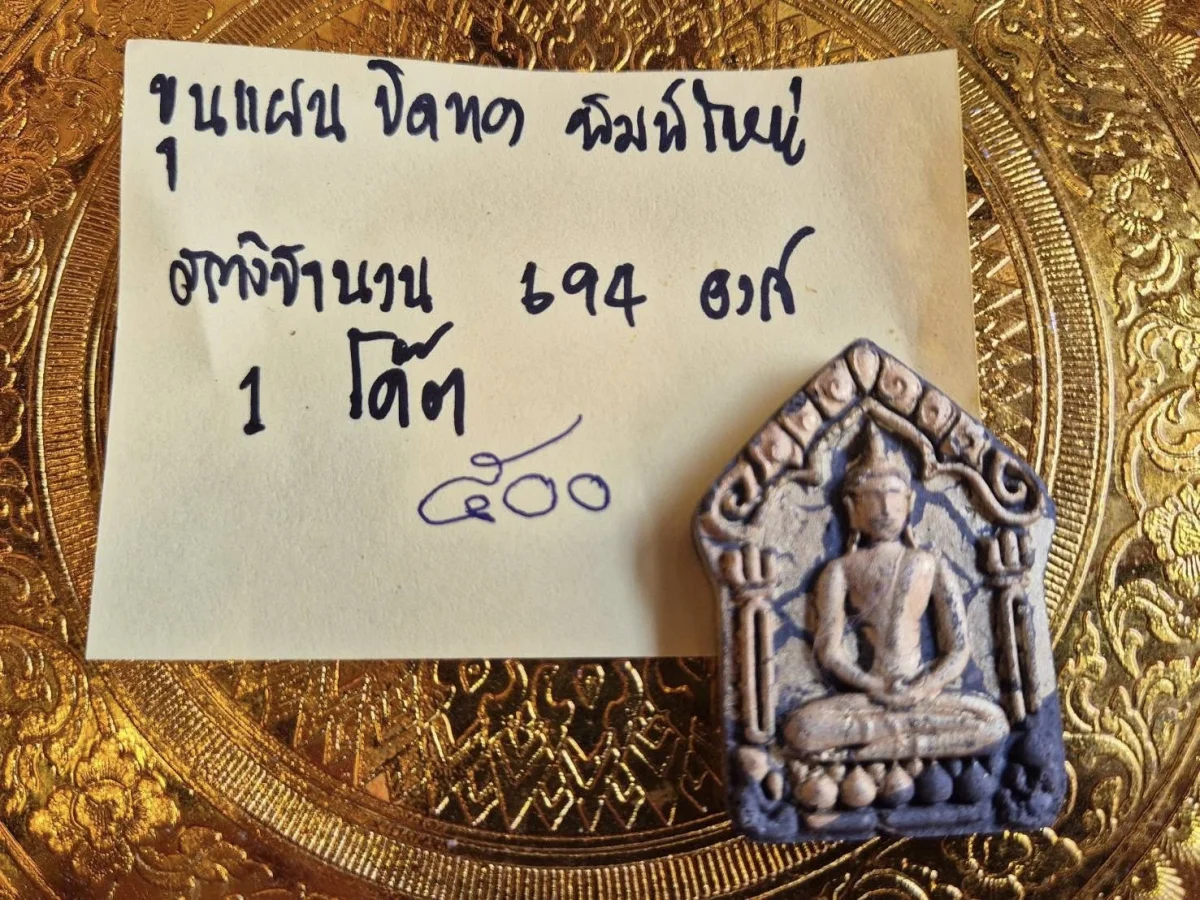 ขุนแผน ปิดทอง พิมพ์ใหญ่
สร้างจำนวน 694 องค์
1 โค๊ต
๕๐๐